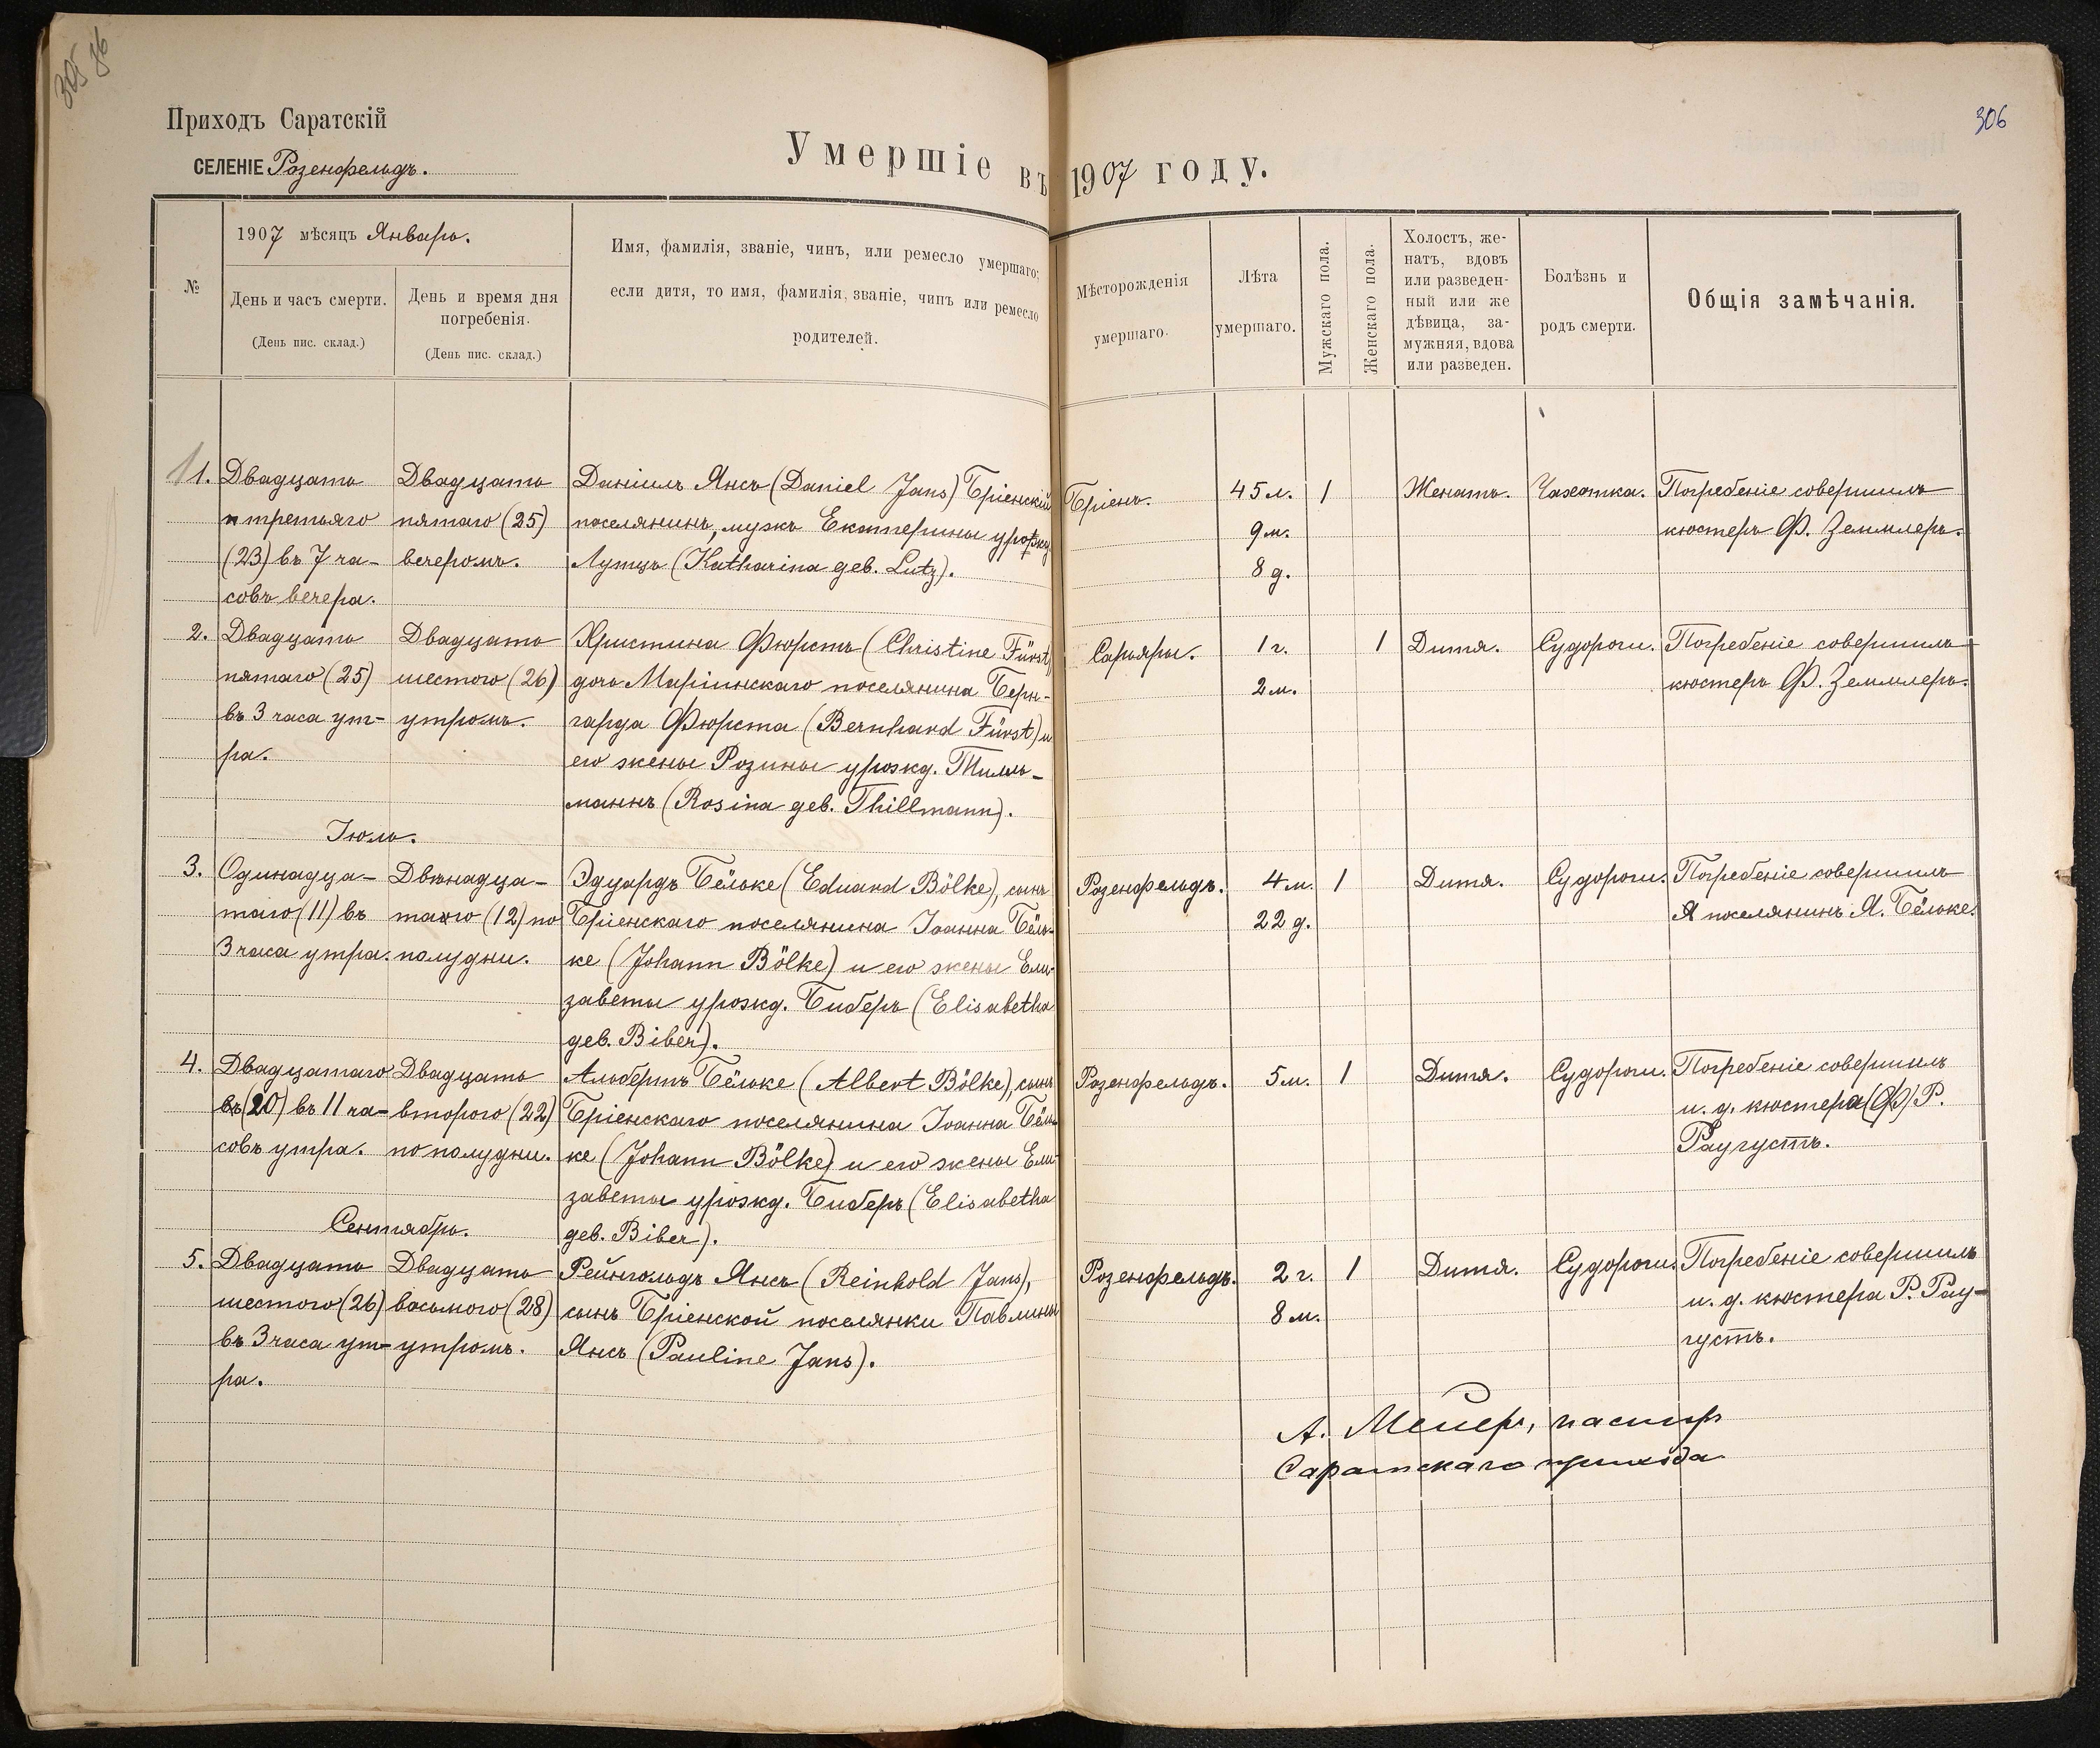 305 86
306
Приходъ Саратскій
СЕЛЕНІЕ Розенфельдъ.
Умершіе въ 1907 году.
№
1907 мѣсяцъ Январь.
День и часъ смерти.
(День пис. склад.)
День и время дня
погребенія.
(День пис. склад.)
Имя, фамилія, званіе, чинъ, или ремесло умершаго;
если дитя, то имя, фамилія, званіе, чинъ или ремесло
родителей.
Мѣсторожденія
умершаго.
Лѣта
умершаго.
Мужскаго пола.
Женскаго пола.
Холостъ, же-
натъ, вдовъ
или разведен-
ный или же
дѣвица, за-
мужняя, вдова
или разведен.
Болѣзнь и
родъ смерти.
Общія замѣчанія.
1. Двадцать Двадцать Даніилъ Янсъ (Daniel Jans) Бріенскій Бріенъ. 45 л. 1 Женатъ. Чахотка. Погребеніе совершилъ
третьяго пятаго (25) поселянинъ, мужъ Екатерины урожд. 9 м. кюстеръ Ф. Земмлеръ.
(23) въ 7 ча- вечеромъ. Лутцъ (Katharina geb. Lutz). 8 д.
совъ вечера.
2. Двадцать Двадцать Христина Фюрстъ (Christine Fürst), Сарьяры. 1 г. 1 Дитя. Судороги. Погребеніе совершилъ
пятаго (25) шестого (26) дочь Маріинскаго поселянина Берн- 2 м. кюстеръ Ф. Земмлеръ.
въ 3 часа ут- утромъ. гарда Фюрста (Bernhard Fürst) и
ра. его жены Розины урожд. Тилль-
маннъ (Rosina geb. Thillmann).
Іюль.
3. Одинадца- Двѣнадца- Эдуардъ Бёльке (Eduard Bölke), сынъ Розенфельдъ. 4 м. 1 Дитя. Судороги. Погребеніе совершилъ
таго (11) въ таго (12) по Бріенскаго поселянина Іоанна Бёль- 22 д. поселянинъ Я. Бёльке.
3 часа утра. полудни. ке (Johann Bölke) и его жены Ели-
заветы урожд. Биберъ (Elisabetha
geb. Biber).
4. Двадцатаго Двадцать Альбертъ Бёльке (Albert Bölke), сынъ Розенфельдъ. 5 м. 1 Дитя. Судороги. Погребеніе совершилъ
(20) въ 11 ча- второго (22) Бріенскаго поселянина Іоанна Бёль- и. д. кюстера (Ф) Р.
совъ утра. по полудни. ке (Johann Bölke) и его жены Ели- Раугустъ.
заветы урожд. Биберъ (Elisabetha
Сентябрь. geb. Biber).
5. Двадцать Двадцать Рейнгольдъ Янсъ (Reinhold Jans), Розенфельдъ. 2 г. 1 Дитя. Судороги. Погребеніе совершилъ
шестого (26) восьмого (28) сынъ Бріенской поселянки Павлины 8 м. и. д. кюстера Р. Рау-
въ 3 часа ут- утромъ. Янсъ (Pauline Jans). густъ.
ра.
А. Мейеръ, пасторъ
Саратскаго прихода